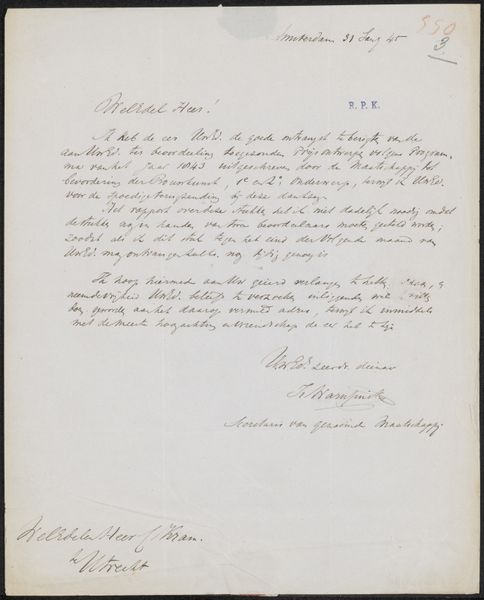 Amsterdam 31 Jany 45
550
3.
WelEdel Heer!
R.P.K.
Ik heb de eer UwEd. de goede ontvangst te berigten van de
aan UwEd. ter beoordeeling toegezonden Prijsontwerpen volgens Program
ma van het Jaar 1843 uitgeschreven door de Maatschappij tot
bevordering der Bouwkunst, 1e en 2e onderwerp, terwijl ik UwEd.
voor de spoedige terugzending bij deze dankzeg.
Het rapport over deze stukken heb ik niet dadelijk noodig omdat
de stukken nog in handen van twee beoordeelaars moeten gesteld worden;
zoodat als ik dit stuk tegen het eind der volgende maand van
UwEd. mag ontvangen zulks nog tijdig genoeg is
Ik hoop hiermede aan Uw geëerd verlangen te hebben
neem de vrijheid UwEd. beleefd te verzoeken inliggenden
aan het daarop vermeld adres, terwijl ik inmiddels
met de meeste hoogachting en vriendschap de eer heb te zijn
UwEd. zeer dv. dienaar
Warnsinck
Secretaris van genoemde Maatschappij
WelEdelen Heer C Kram.
te Utrecht